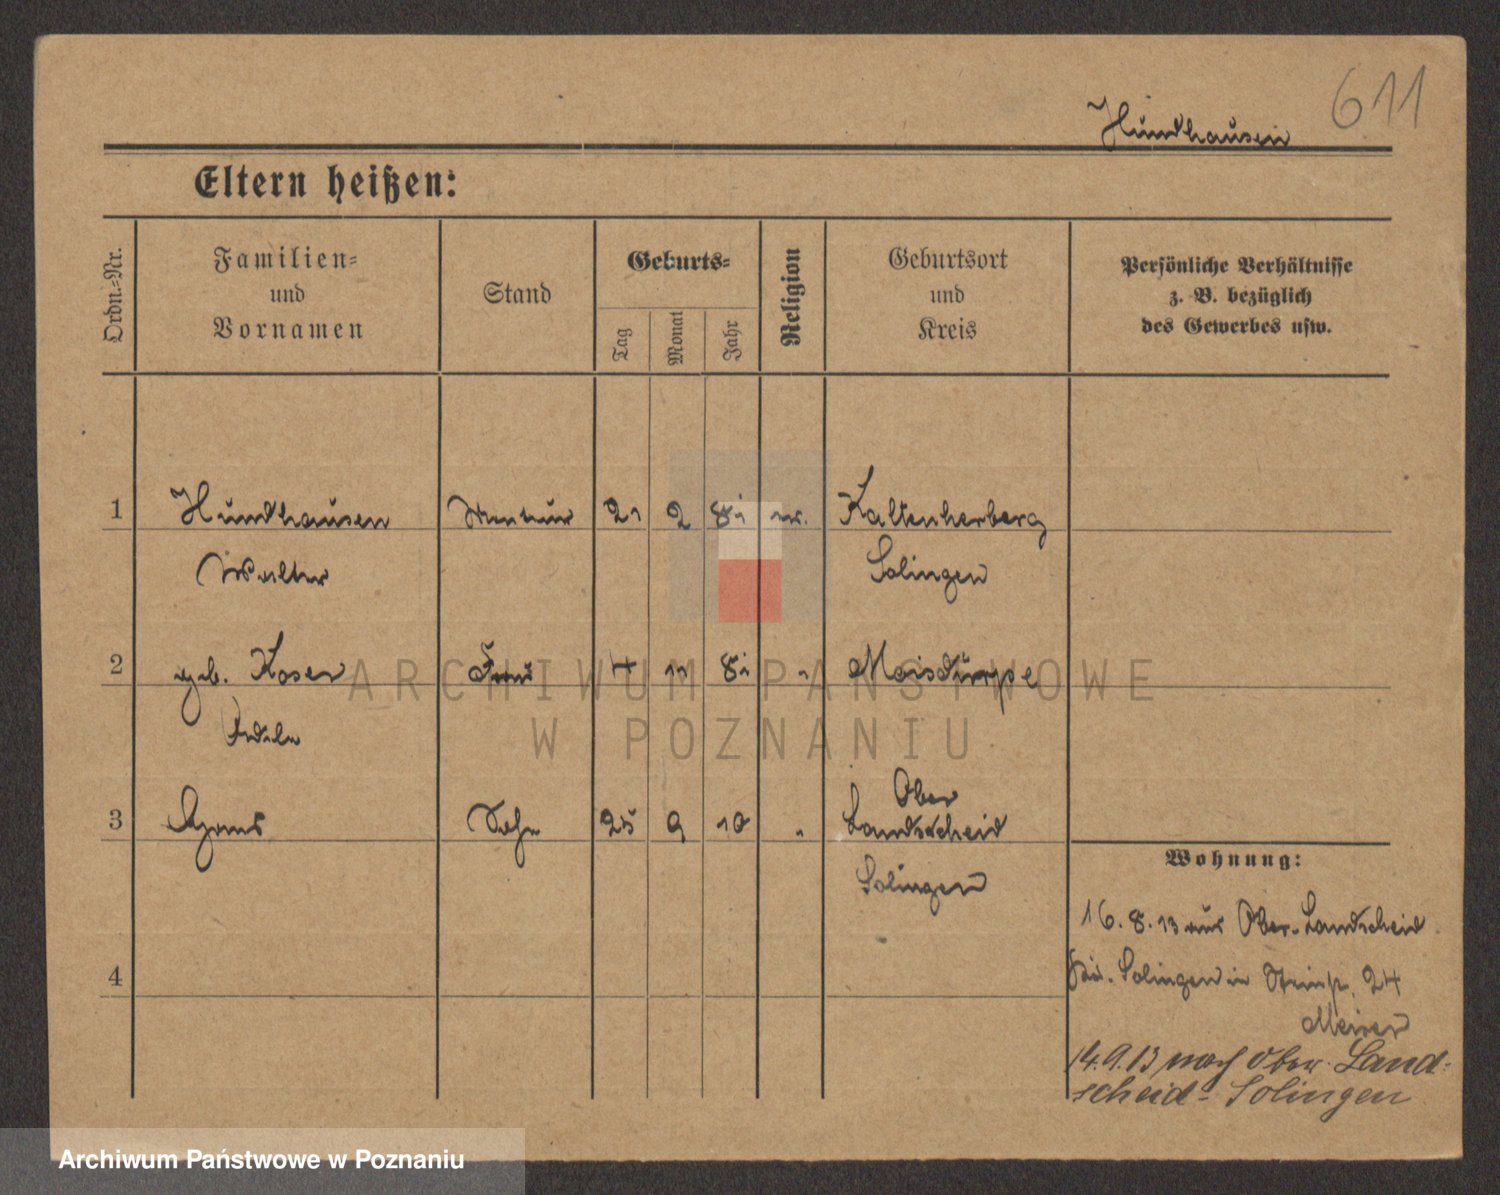 611
Hundhausen
Eltern heißen:
Ordn.-Nr.
Familien-
und
Vornamen
Stand
Geburts-
Tag
Monat
Jahr
Religion
Geburtsort
und
Kreis
Persönliche Verhältnisse
z. B. bezüglich
des Gewerbes usw.
1 Hundhausen 21 2 81 Kaltenherberg
Walter Solingen
2 geb. Koser Frau 4 11 81 "
Adele
Ober
3 Sohn 25 9 10 " Landscheid
Solingen
4
Wohnung:
16.8.13 aus Ober-Landscheid
Solingen in 24
Meiser
14.9.13 nach Ober Land-
scheid-Solingen
ARCHIWUM PAŃSTWOWE
W POZNANIU
Archiwum Państwowe w Poznaniu